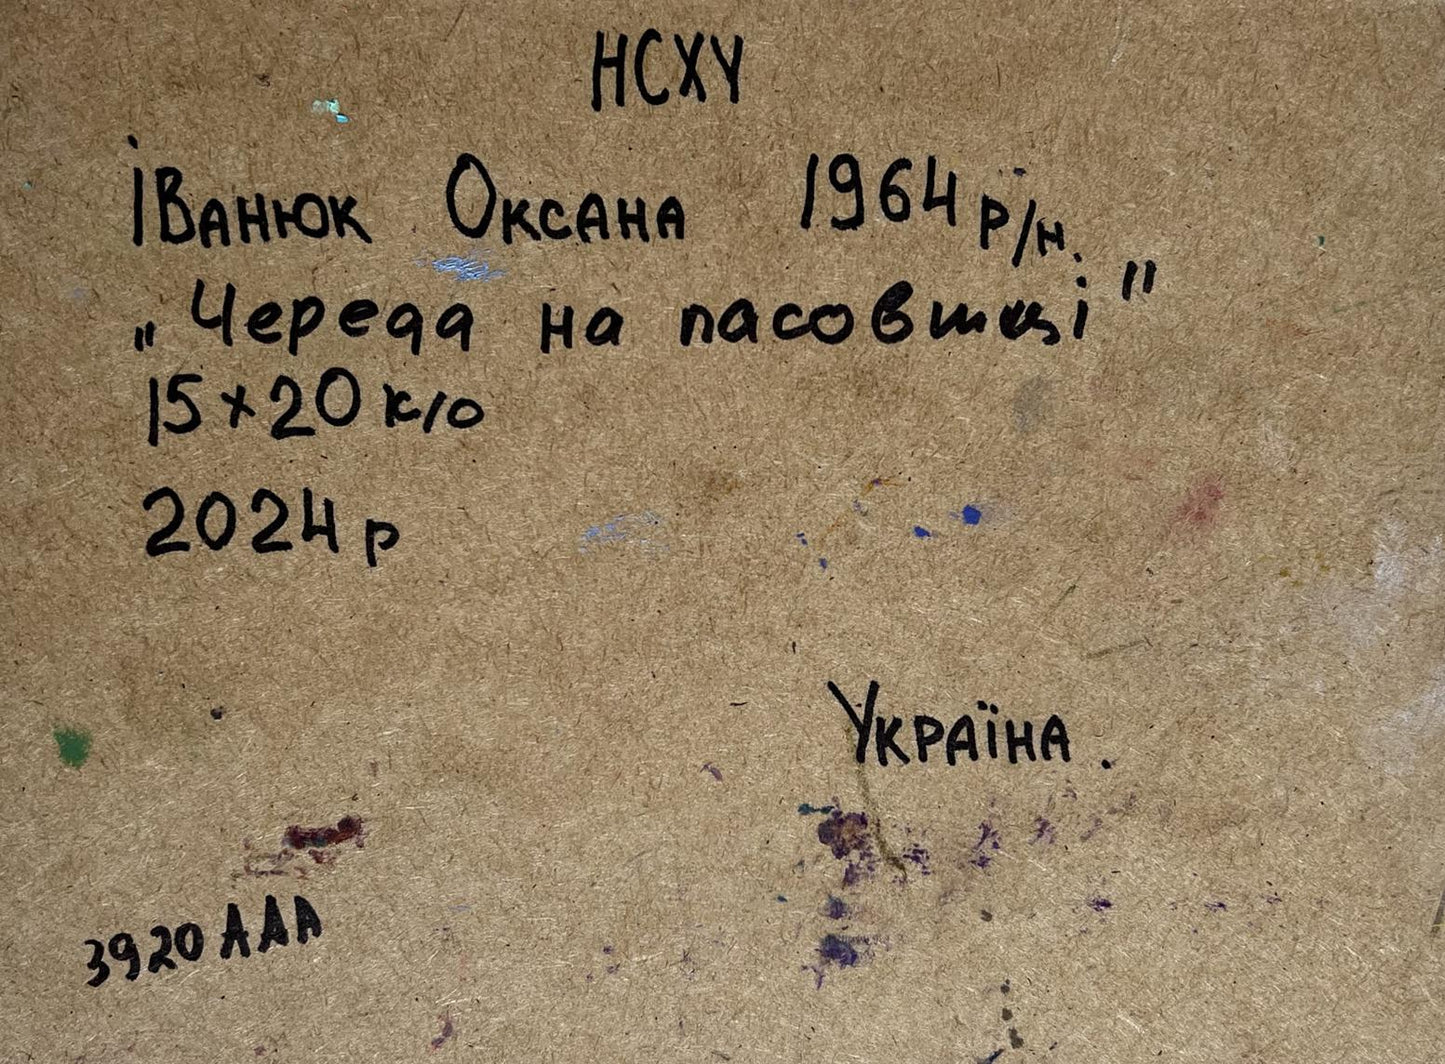 НСХУ
Іванюк Оксана 1964 р/н.
„Череда на пасовищі"
15×20 к/о
2024 р
Україна.
3920 ААА